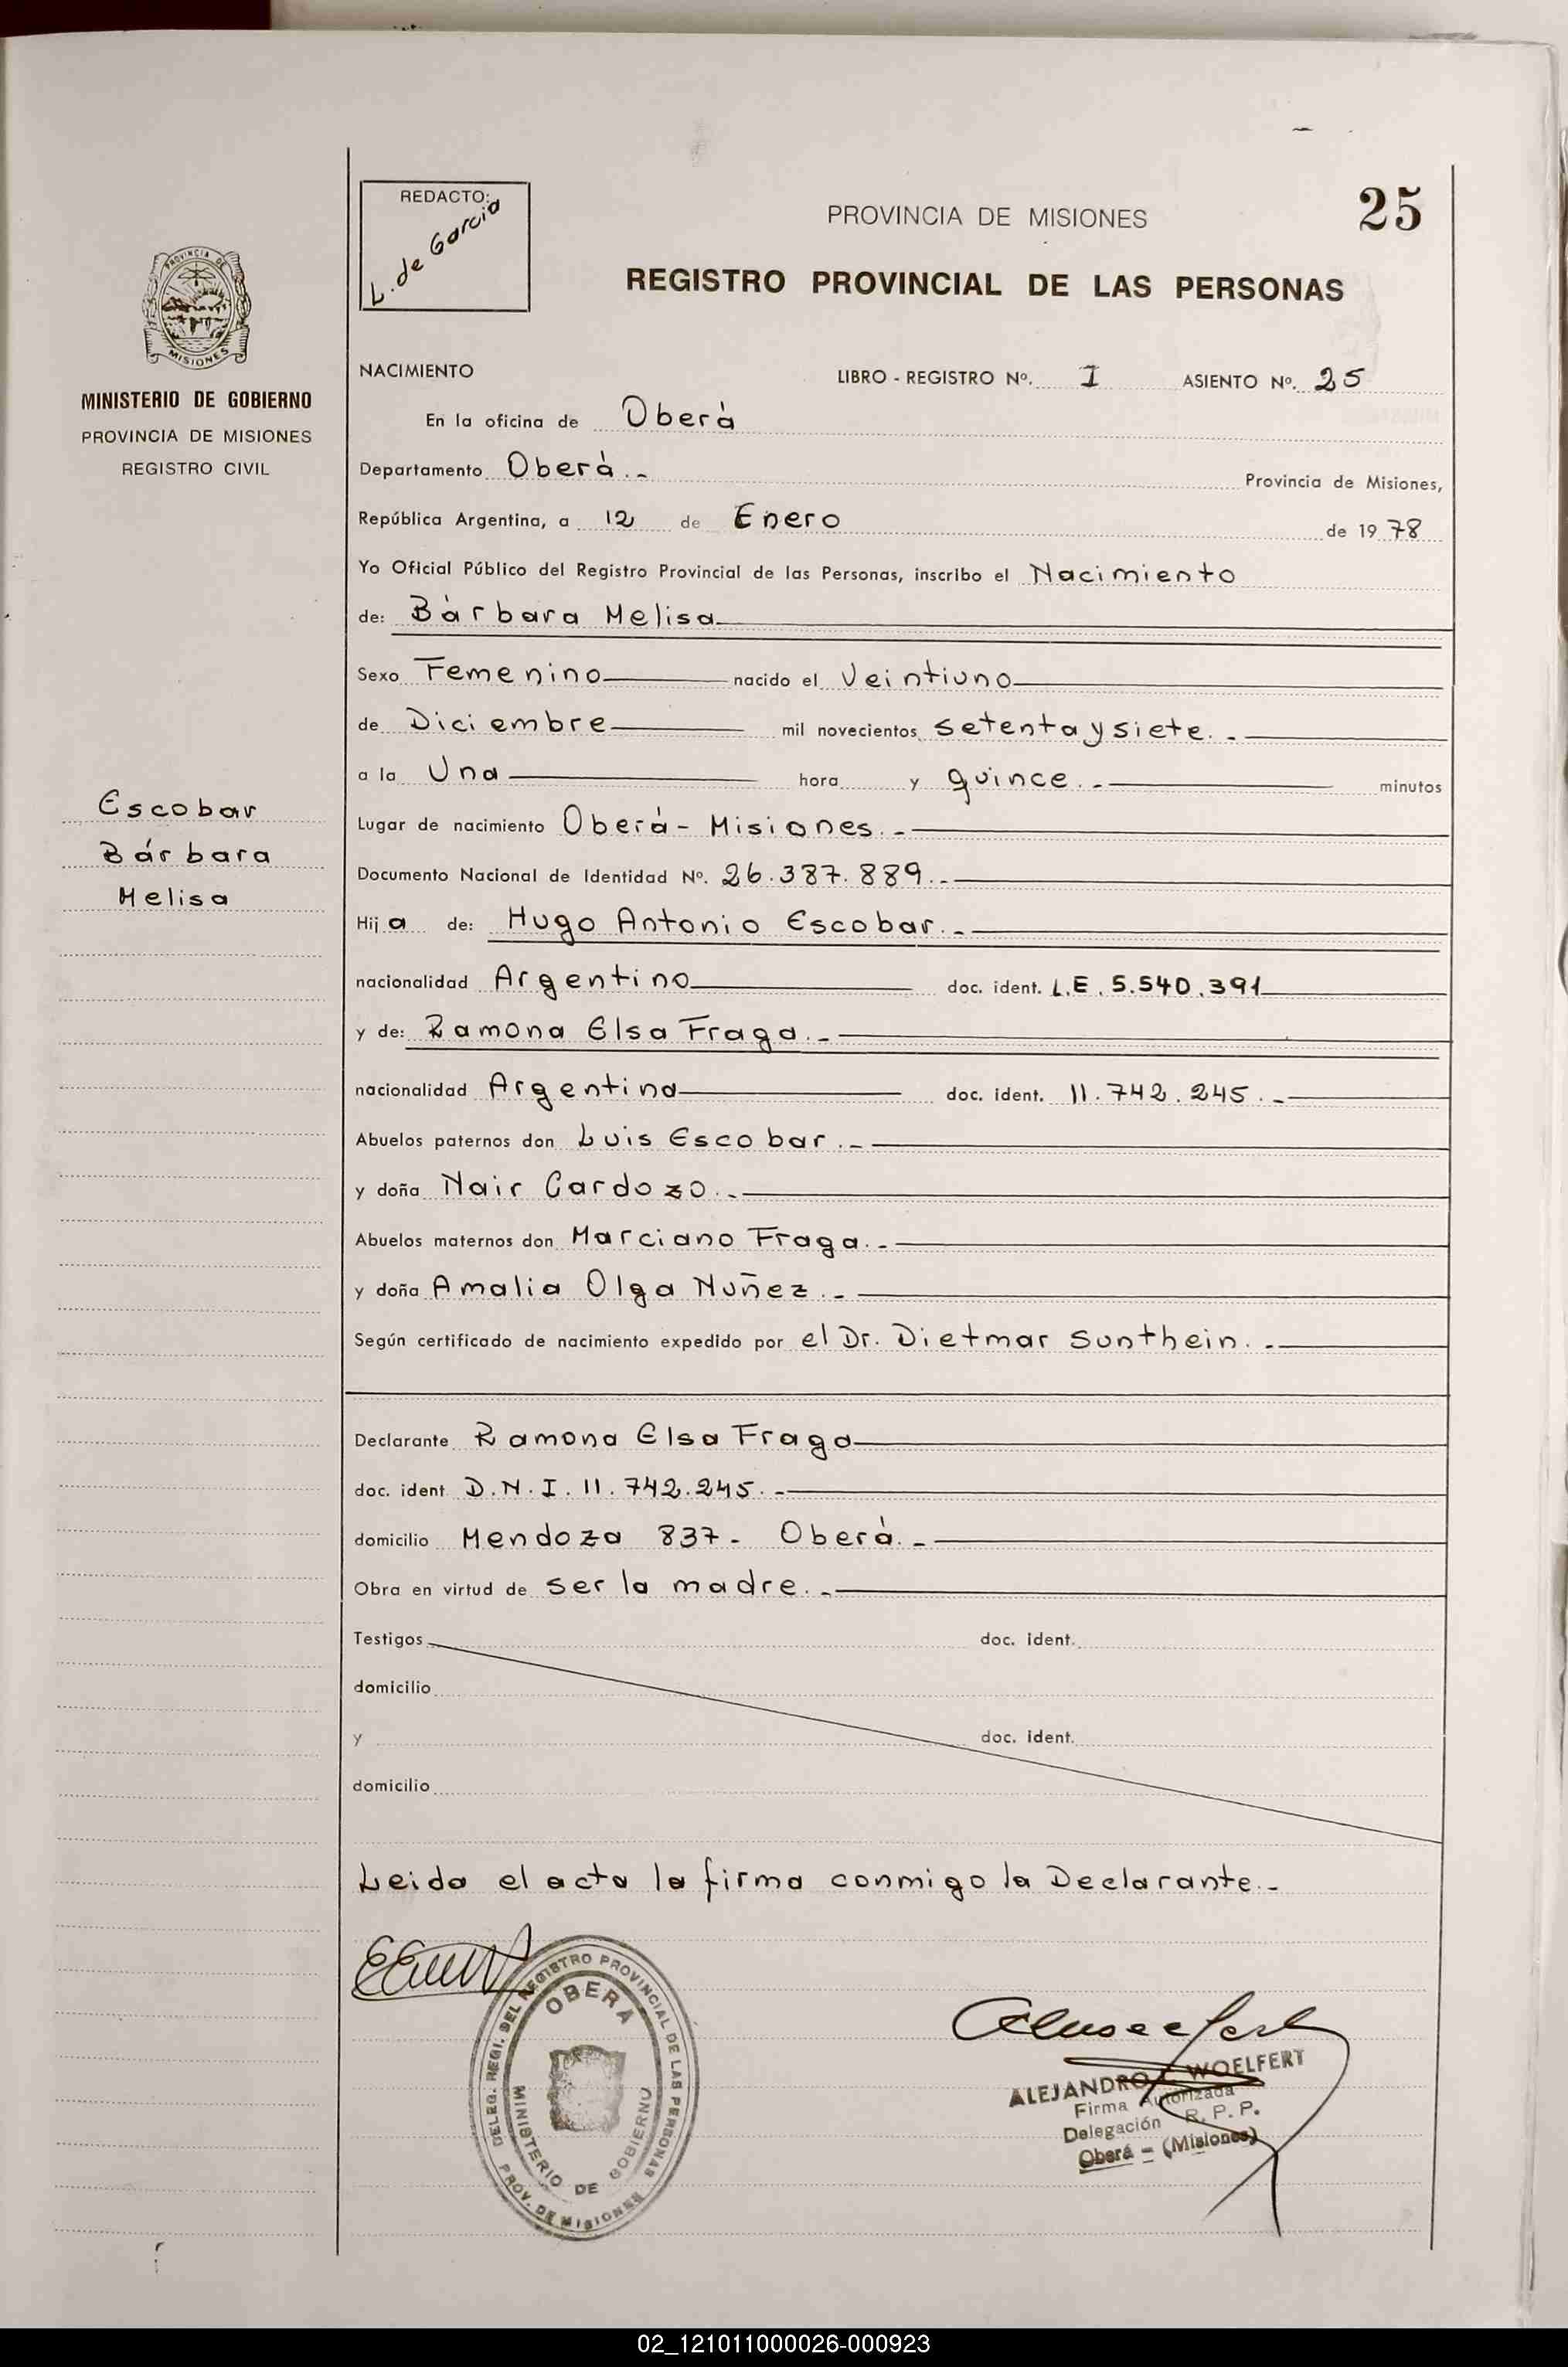 REDACTO:
L. de Garcia
PROVINCIA DE MISIONES
25
REGISTRO PROVINCIAL DE LAS PERSONAS
PROVINCIA DE
MISIONES
MINISTERIO DE GOBIERNO
PROVINCIA DE MISIONES
REGISTRO CIVIL
Escobar
Bárbara
Melisa
NACIMIENTO LIBRO - REGISTRO Nº. I ASIENTO Nº. 25
En la oficina de Oberà
Departamento Oberà.- Provincia de Misiones,
República Argentina, a 12 de Enero de 1978
Yo Oficial Público del Registro Provincial de las Personas, inscribo el Nacimiento
de: Bàrbara Melisa
Sexo Femenino nacido el Veintiuno
de Diciembre mil novecientos setenta y siete.-
a la Una hora y quince.- minutos
Lugar de nacimiento Oberà - Misiones.-
Documento Nacional de Identidad Nº. 26.387.889.-
Hija de: Hugo Antonio Escobar.-
nacionalidad Argentino doc. ident. L.E. 5.540.391
y de: Ramona Elsa Fraga.-
nacionalidad Argentina doc. ident. 11.742.245.-
Abuelos paternos don Luis Escobar.-
y doña Nair Cardozo.-
Abuelos maternos don Marciano Fraga.-
y doña Amalia Olga Nuñez.-
Según certificado de nacimiento expedido por el Dr. Dietmar Sunthein.-
Declarante Ramona Elsa Fraga
doc. ident D.N.I. 11.742.245.-
domicilio Mendoza 837- Oberà.-
Obra en virtud de ser la madre.-
Testigos doc. ident.
domicilio
y doc. ident.
domicilio
Leida el acta la firma conmigo la Declarante.-
DELEG. REGI. DEL REGISTRO PROVINCIAL DE LAS PERSONAS
OBERA
MINISTERIO DE GOBIERNO
PROV. DE MISIONES
ALEJANDRO WOELFERT
Firma Autorizada
Delegación R. P. P.
Oberá - (Misiones)
02_121011000026-000923